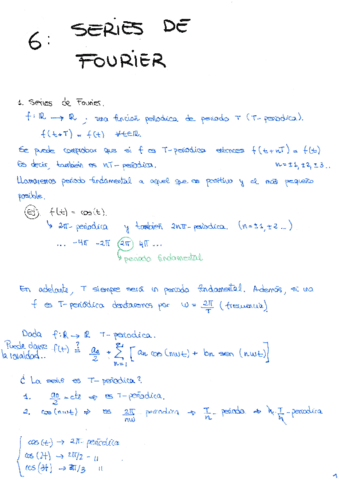 6: SERIES DE
FOURIER
1. Series de Fourier.
f: ℝ → ℝ ; una función periódica de periodo T (T-periódica).
f(t+T) = f(t) ∀t∈ℝ.
Se puede comprobar que si f es T-periódica entonces f(t+nT) = f(t)
Es decir, también es nT-periódica. n=±1,±2,±3...
Llamaremos periodo fundamental a aquel que es positivo y el más pequeño
posible.
Ej f(t) = cos(t).
↳ 2π-periódica y también 2nπ-periódica (n=±1,±2...)
... -4π -2π 2π 4π ...
↳ periodo fundamental
En adelante, T siempre será un periodo fundamental. Además, si una
f es T-periódica denotaremos por ω = 2π/T (frecuencia)
Dada f: ℝ → ℝ T-periódica.
Puede darse la igualdad... f(t) ?= a₀/2 + Σ n=1 [an cos(nωt) + bn sen(nωt)]
¿ La serie es T-periódica?
1. a₀/2 = cte → es T-periódica.
2. cos(nωt) → es 2π/nω periódica → T/n - periódica → T-periódica
cos(t) → 2π periódica
cos(2t) → 2π/2 - "
cos(3t) → 2π/3 "
1